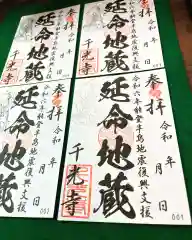 奉拝 令和 年 月 日
令和六年能登半島地震復興支援
延命地蔵
千光寺
奉拝 令和 年 月 日
令和六年能登半島地震復興支援
延命地蔵
千光寺
奉拝 令和 年 月 日
令和六年能登半島地震復興支援
延命地蔵
千光寺
001
奉拝 令和 年 月 日
令和六年能登半島地震復興支援
延命地蔵
001